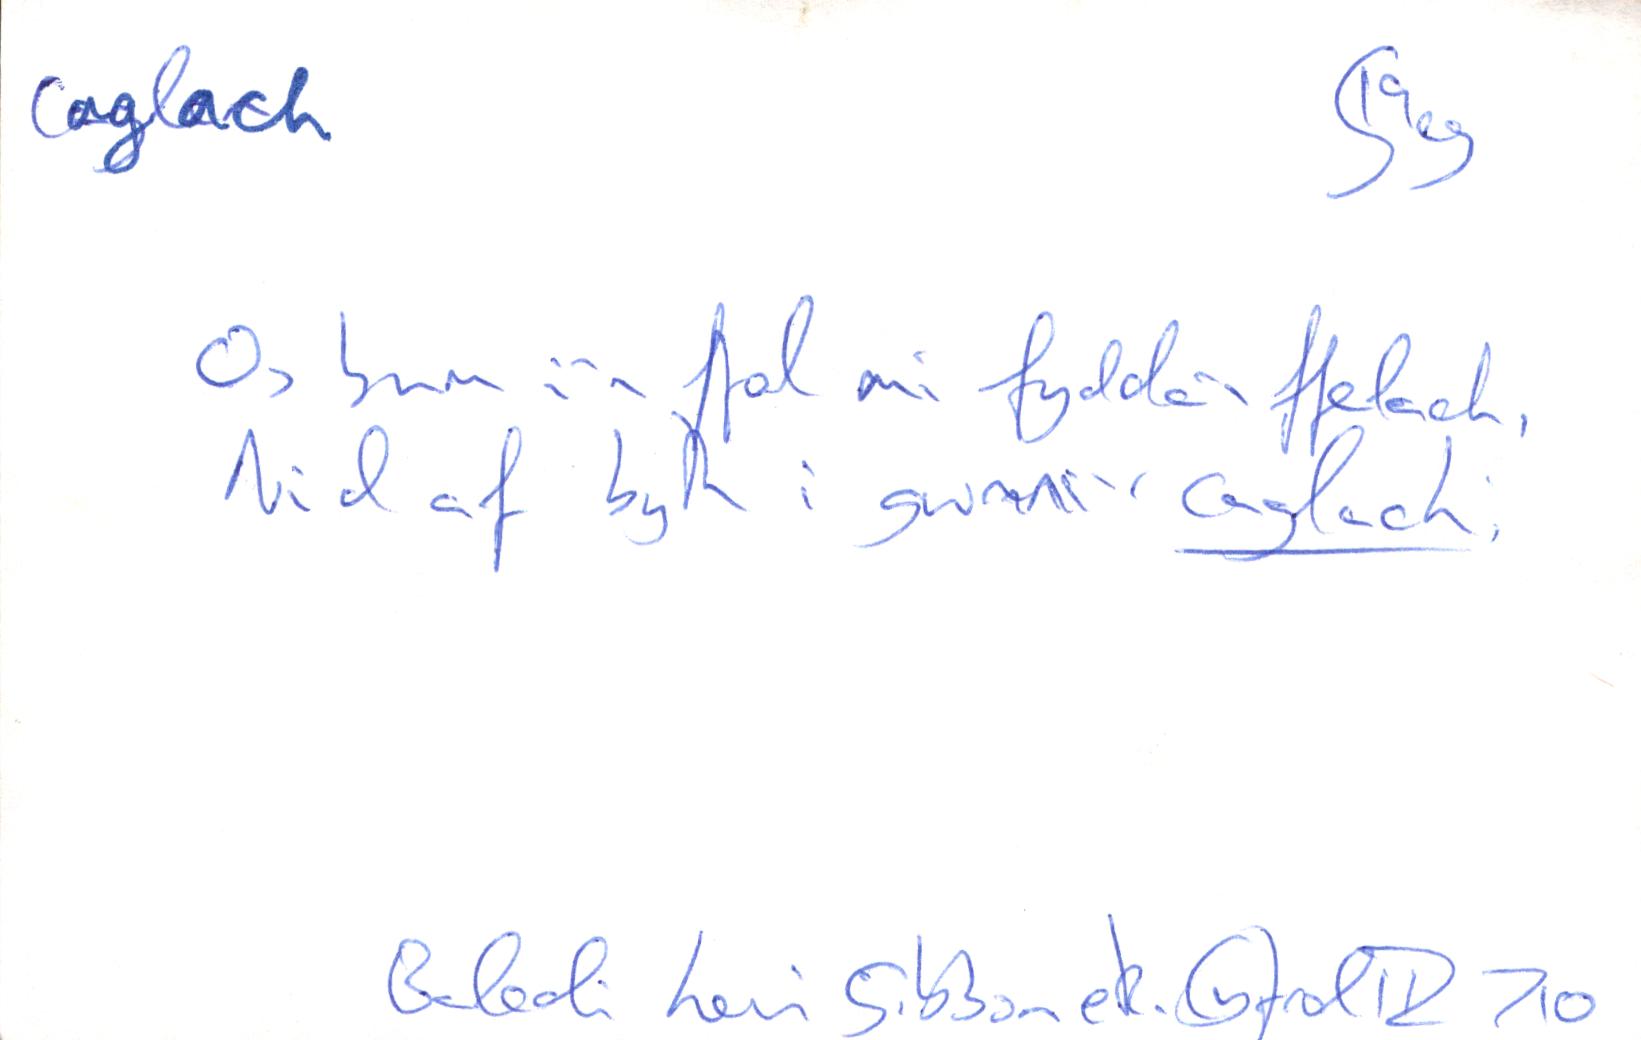 Caglach
19eg
Os bum i'n ffol mi fydda'n ffelach,
Nid af byth i garu'r caglach;
Baledi Levi Gibbon etc. Cyfrol IV 710